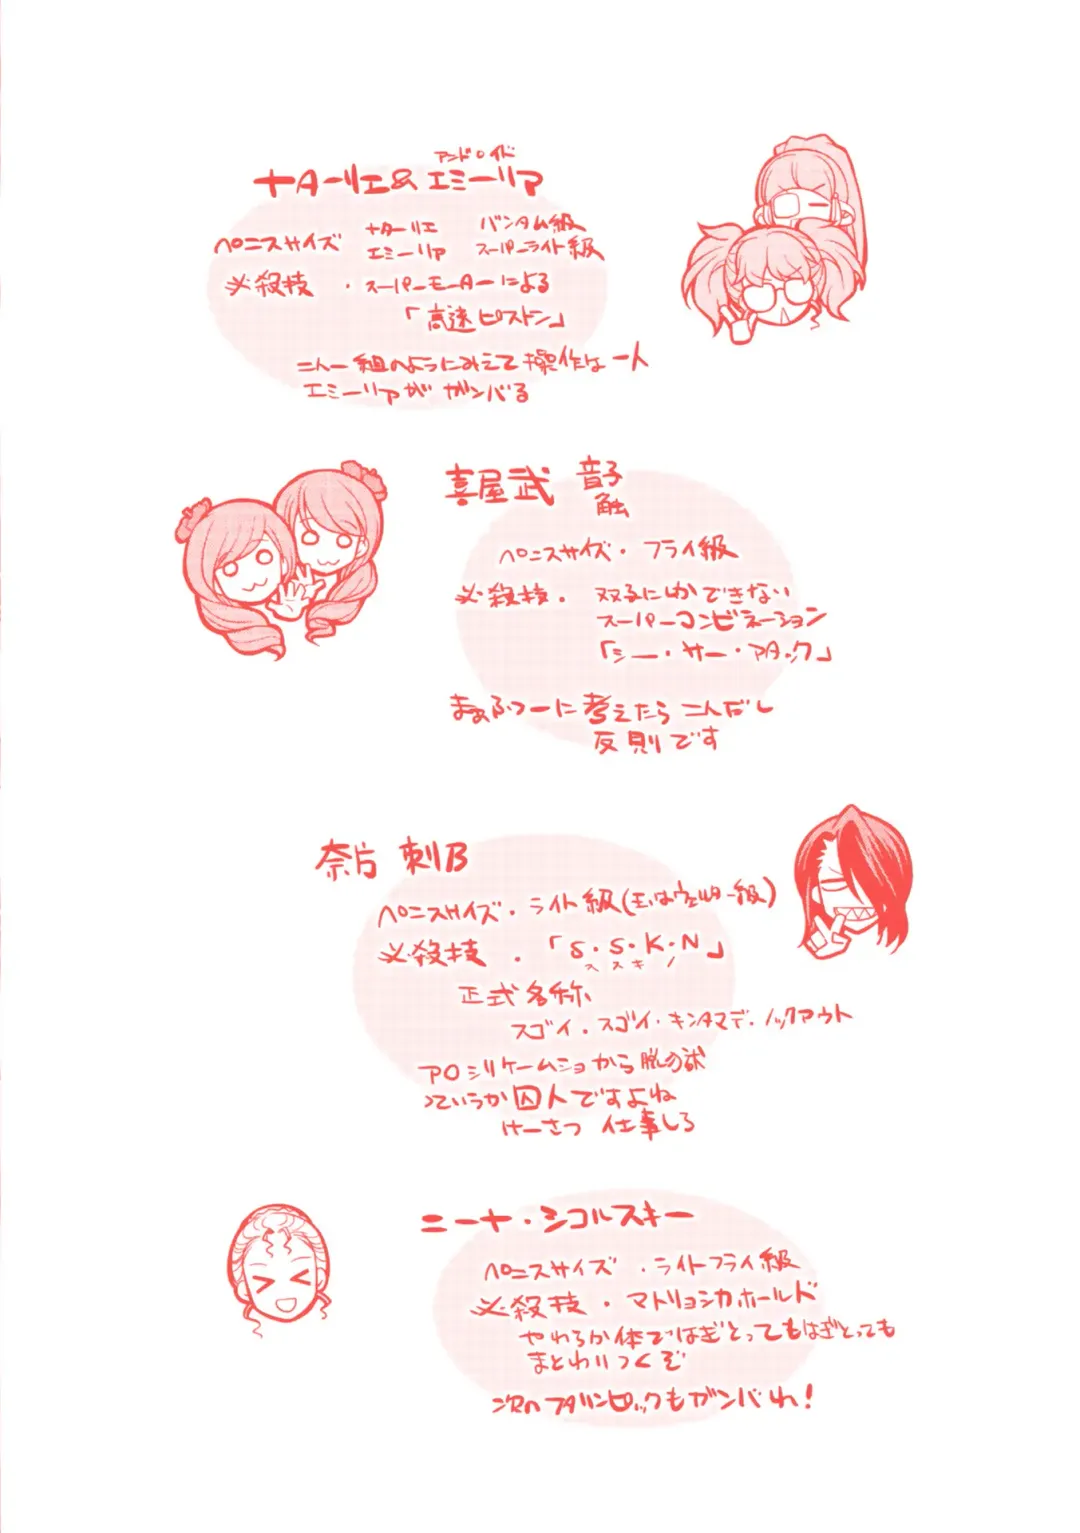 アンドロイド
ナターリエ&エミーリア
ペニスサイズ ナターリエ バンタム級
エミーリア スーパーライト級
必殺技・スーパーモーターによる
「高速ピストン」
二人一組のようにみえて操作は一人
エミーリアがガンバる
喜屋武 音子
触
ペニスサイズ・フライ級
必殺技・双子にしかできない
スーパーコンビネーション
「シー・サー・アタック」
まぁふつーに考えたら二人だし
反則です
奈片 刺乃
ペニスサイズ・ライト級(玉はウェルター級)
必殺技・「S・S・K・N」
ススキノ
正式名称
スゴイ・スゴイ・キンタマデ・ノックアウト
アロシリケームショから脱の獄
っていうか囚人ですよね
けーさつ 仕事しろ
ニーナ・シコルスキー
ペニスサイズ・ライトフライ級
必殺技・マトリョシカホールド
やわらか体ではぎとってもはぎとっても
まとわりつくぞ
次のフタリンピックもガンバれ!